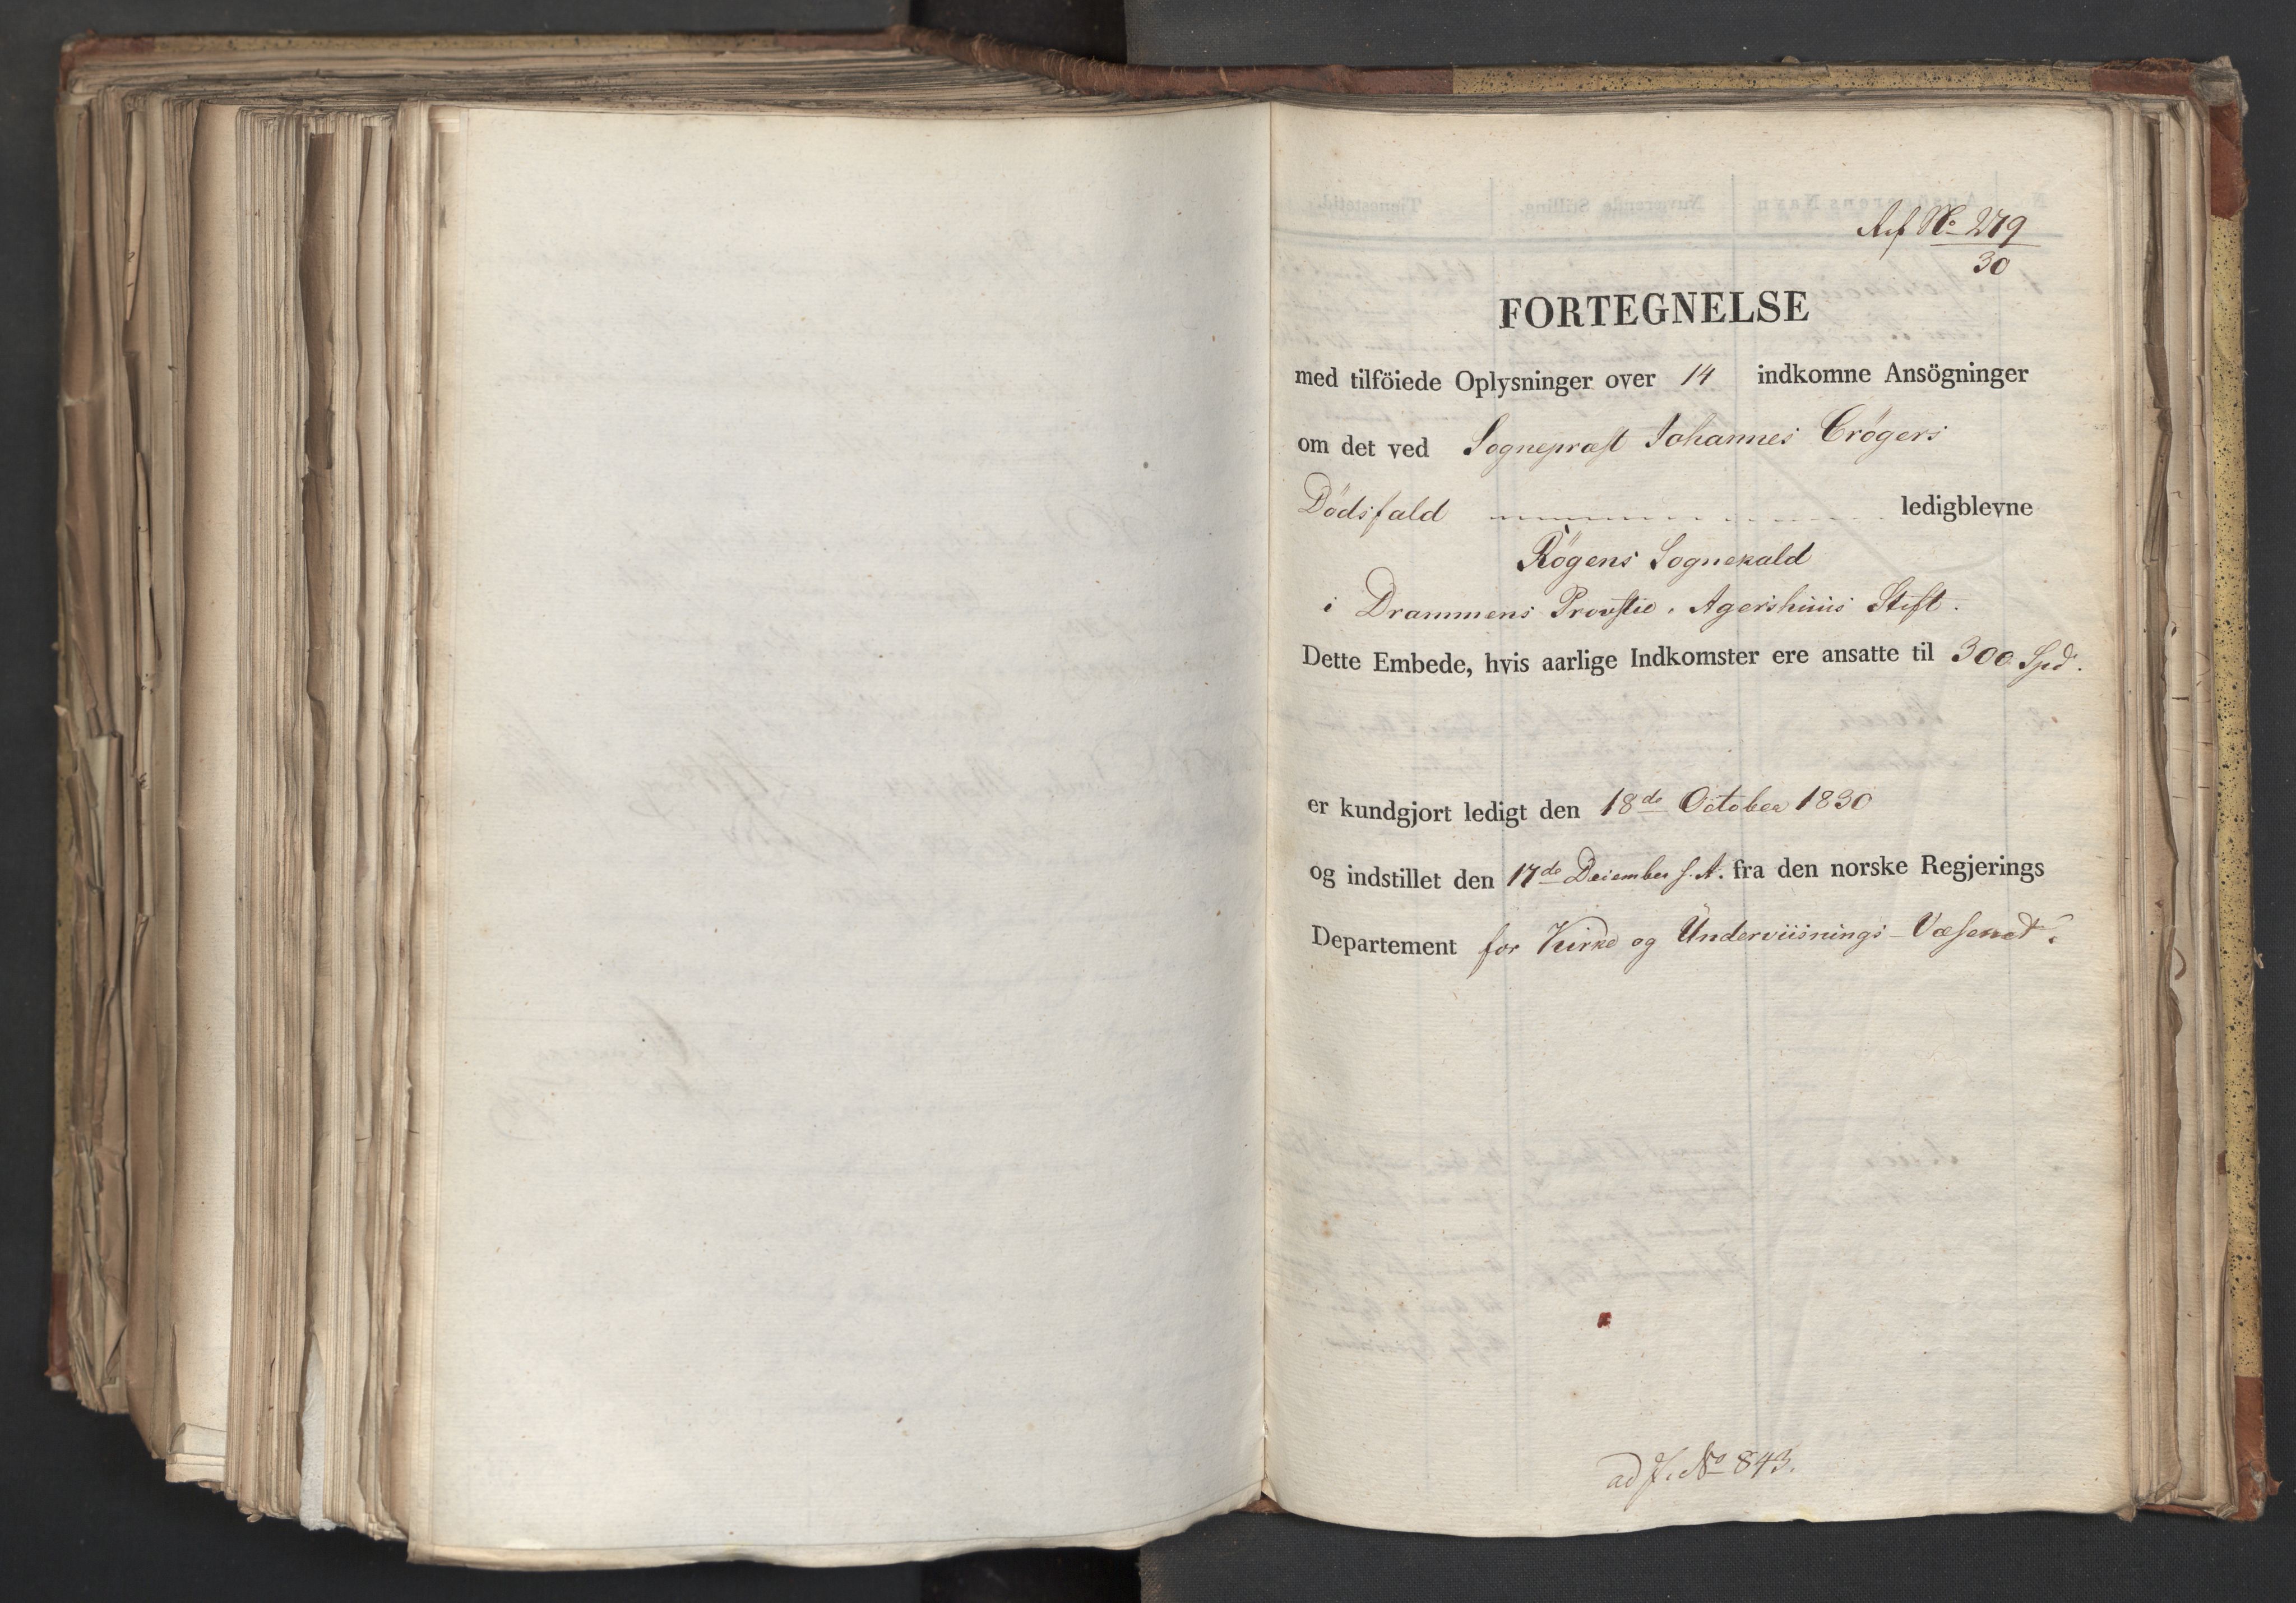 Ref No 279
30
FORTEGNELSE
med tilföiede Oplysninger over 14 indkomne Ansögninger
om det ved Sognepræst Johannes Crøgers
Dödsfald ledigblevne
Røgens Sognekald
i Drammens Provstie, Agershuus Stift.
Dette Embede, hvis aarlige Indkomster ere ansatte til 300 Spd.
er kundgjort ledigt den 18de October 1830
og indstillet den 17de December s. A. fra den norske Regjerings
Departement for Kirke og Underviisnings-Væsenet.
ad J. No 843.